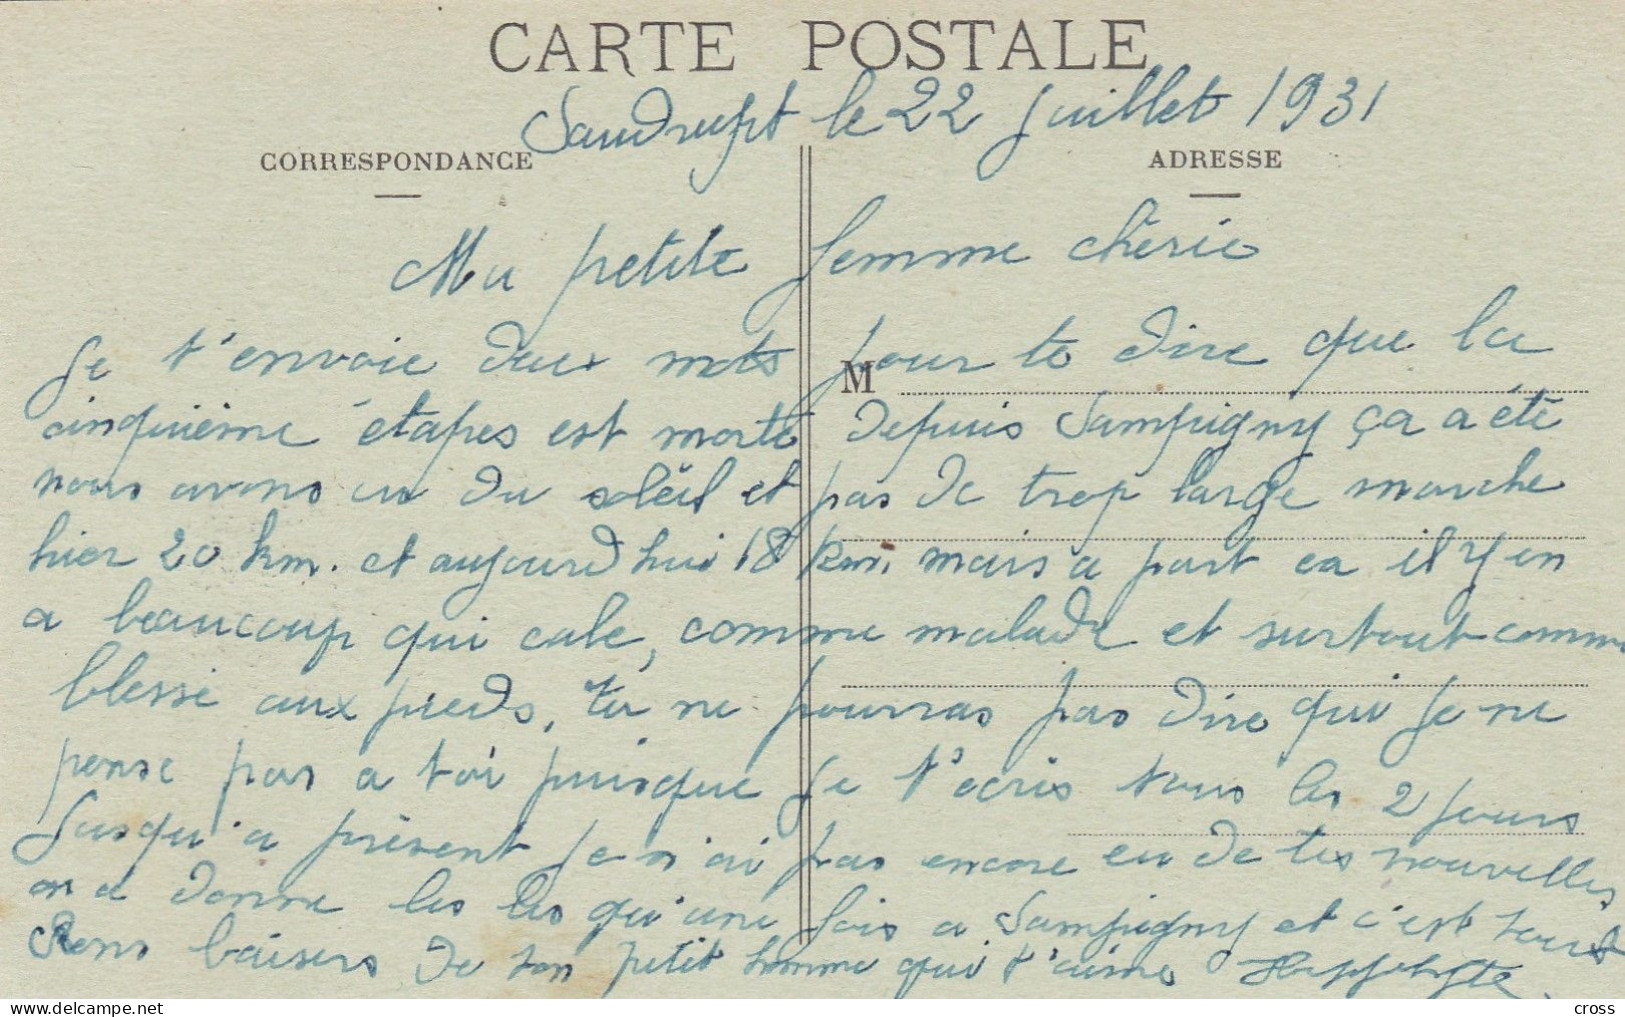 CARTE POSTALE
Saudrupt le 22 juillet 1931
CORRESPONDANCE
ADRESSE
Ma petite femme chérie
Je t'envoie deux mots pour te dire que la
M
cinquième étapes est morte Depuis Sampigny ça a été
nous avons eu du soleil et pas de trop large marche
hier 20 km. et aujourd hui 18 km. mais a part ca il y en
a beaucoup qui cale, comme malade et surtout comme
blessé aux pieds, tu ne pourras pas dire qui je ne
pense pas a toi puisque je t'ecris tous les 2 jours
Jusqu'a présent je n'ai pas encore eu de tes nouvelles
on a donne les les qu'une fois a Sampigny et c'est tout
Bons baisers de ton petit homme qui t'aime Hippolyte
cross